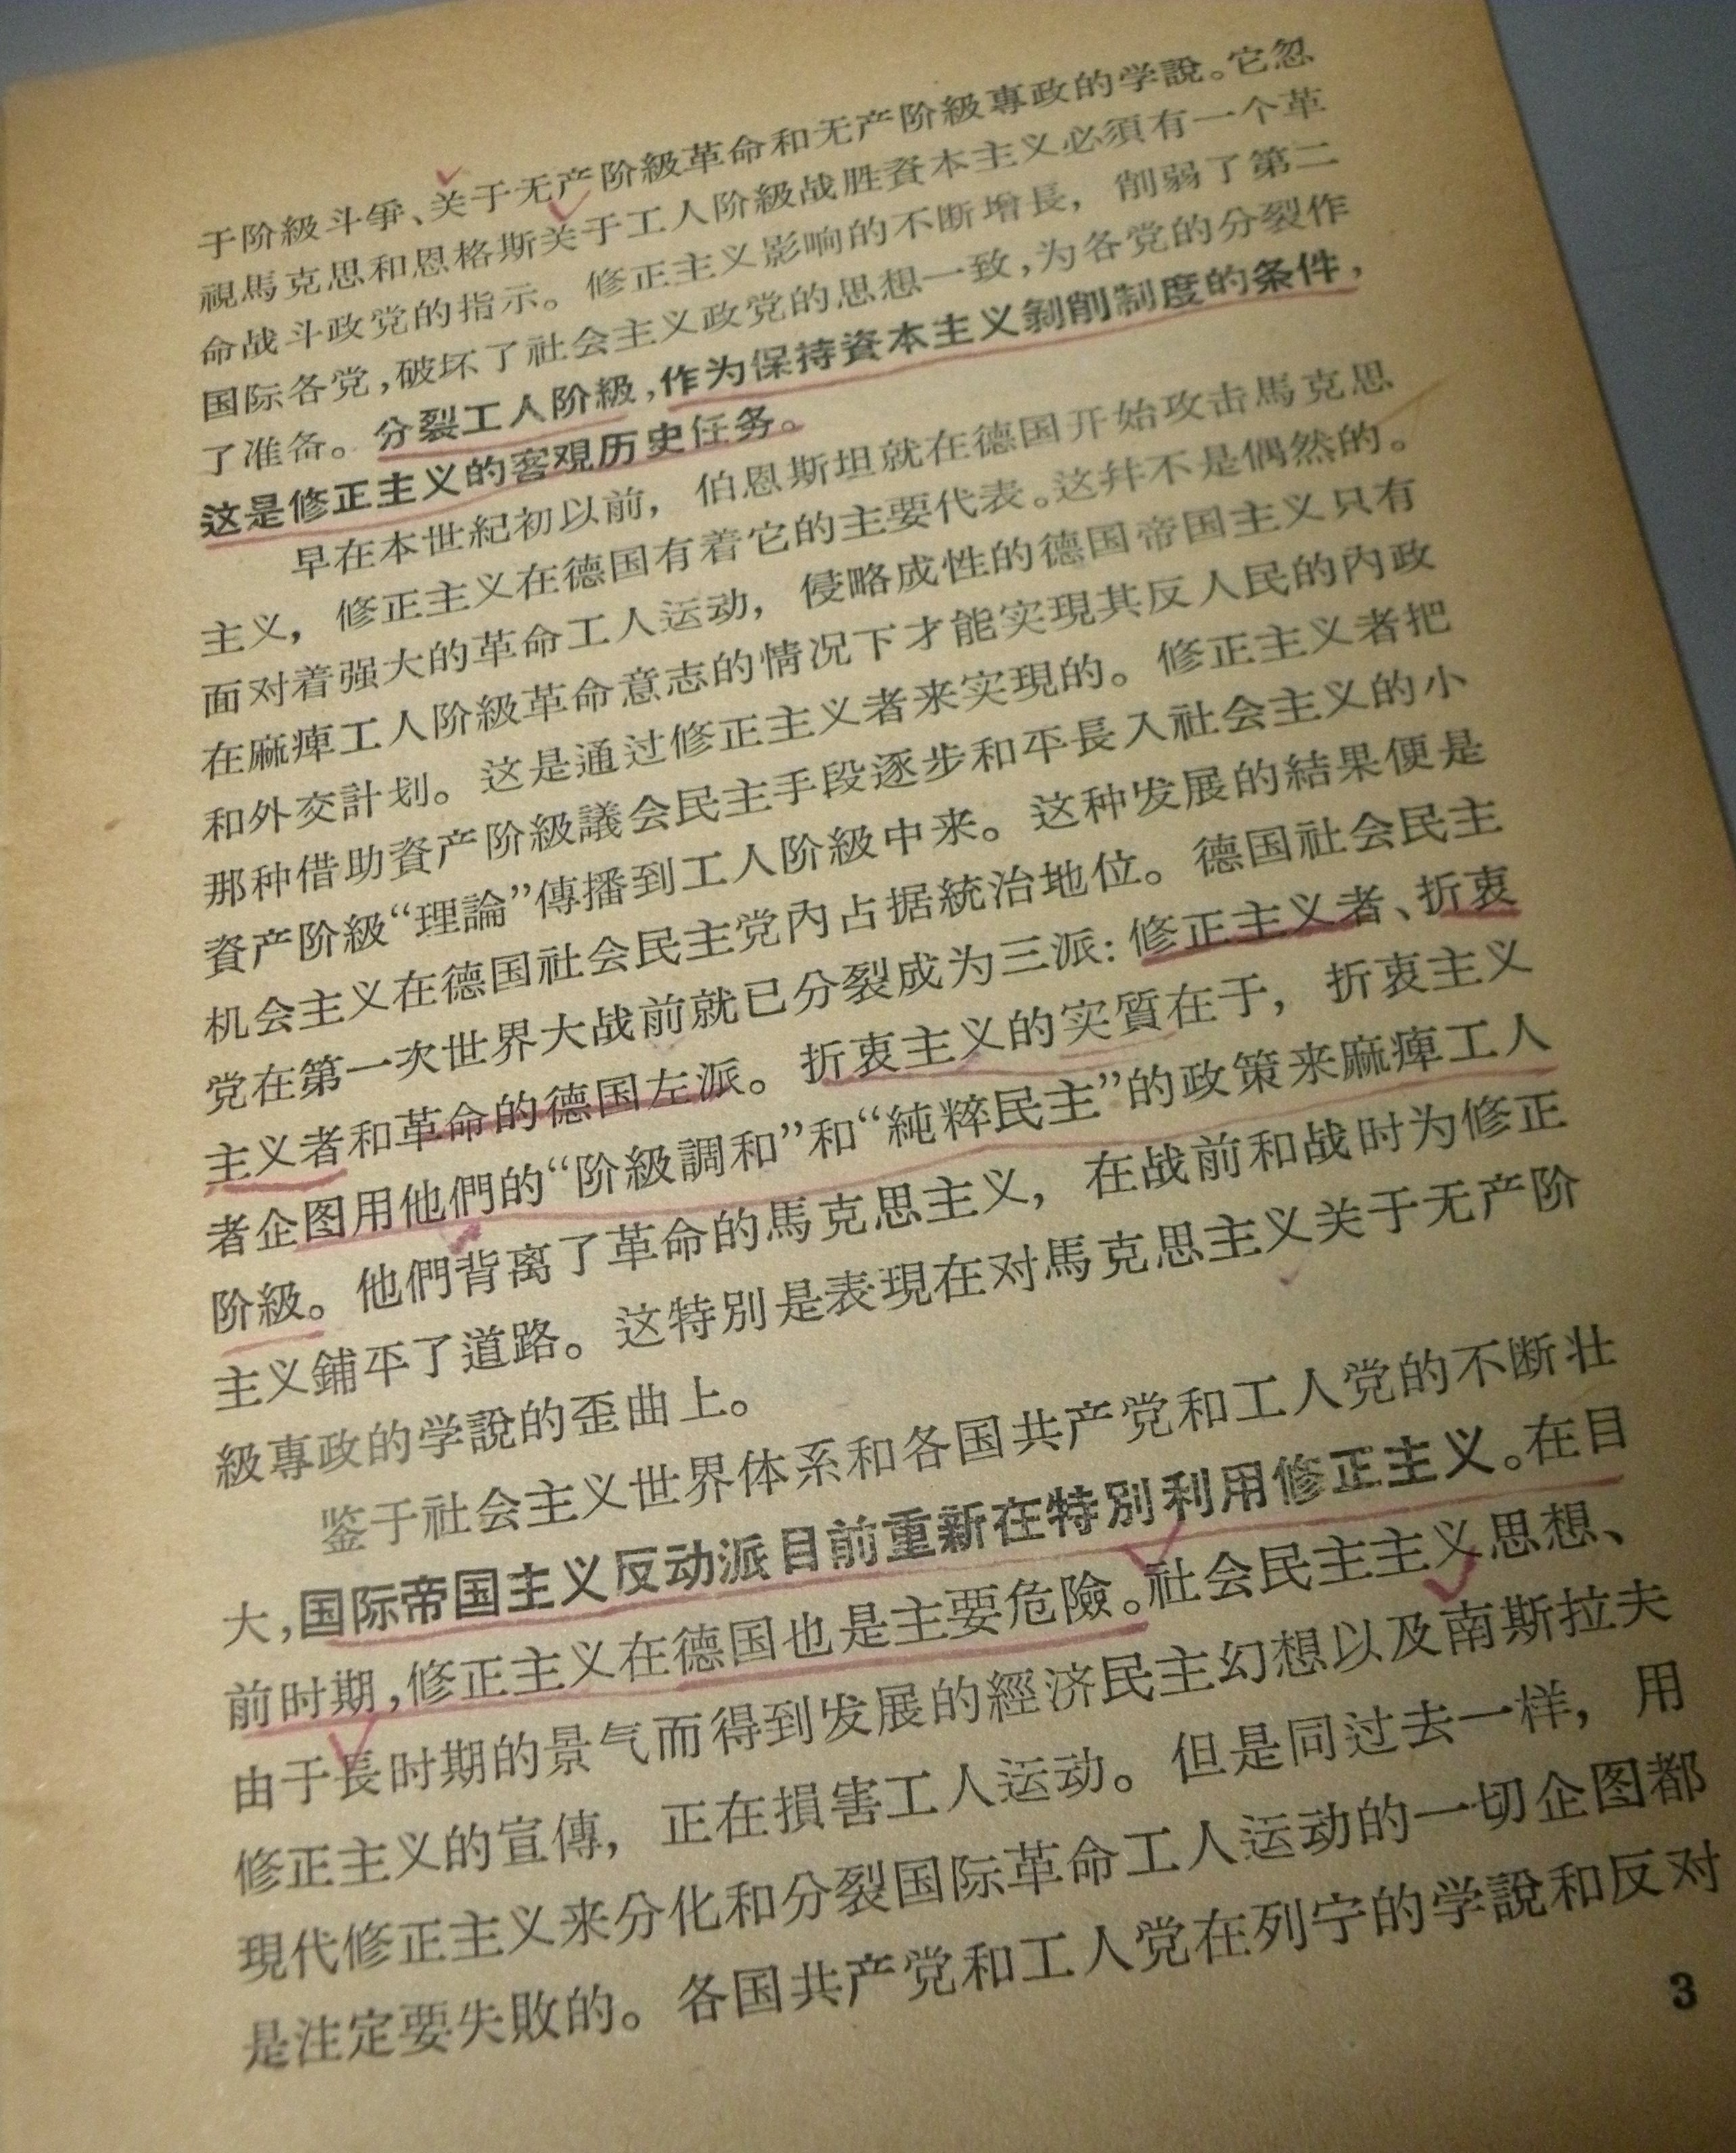 于阶級斗爭、关于无产阶級革命和无产阶級專政的学說。它忽
視馬克思和恩格斯关于工人阶級战胜資本主义必須有一个革
命战斗政党的指示。修正主义影响的不断增長，削弱了第二
国际各党，破坏了社会主义政党的思想一致，为各党的分裂作
了准备。分裂工人阶級，作为保持資本主义剝削制度的条件，
这是修正主义的客观历史任务。
早在本世紀初以前，伯恩斯坦就在德国开始攻击馬克思
主义，修正主义在德国有着它的主要代表。这幷不是偶然的。
面对着强大的革命工人运动，侵略成性的德国帝国主义只有
在麻痺工人阶級革命意志的情况下才能实現其反人民的內政
和外交計划。这是通过修正主义者来实現的。修正主义者把
那种借助資产阶級議会民主手段逐步和平長入社会主义的小
資产阶級“理論”傳播到工人阶級中来。这种发展的結果便是
机会主义在德国社会民主党內占据統治地位。德国社会民主
党在第一次世界大战前就已分裂成为三派：修正主义者、折衷
主义者和革命的德国左派。折衷主义的实質在于，折衷主义
者企图用他們的“阶級調和”和“純粹民主”的政策来麻痺工人
阶級。他們背离了革命的馬克思主义，在战前和战时为修正
主义鋪平了道路。这特別是表現在对馬克思主义关于无产阶
級專政的学說的歪曲上。
鉴于社会主义世界体系和各国共产党和工人党的不断壮
大，国际帝国主义反动派目前重新在特別利用修正主义。在目
前时期，修正主义在德国也是主要危險。社会民主主义思想、
由于長时期的景气而得到发展的經济民主幻想以及南斯拉夫
修正主义的宣傳，正在損害工人运动。但是同过去一样，用
現代修正主义来分化和分裂国际革命工人运动的一切企图都
是注定要失敗的。各国共产党和工人党在列宁的学說和反对
3